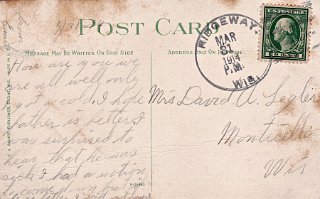 POST CARD
MESSAGE MAY BE WRITTEN ON THIS SIDE
ADDRESS ONLY ON THIS SIDE
RIDGEWAY,
MAR
31
1914
P.M.
WIS.
U.S. POSTAGE
1 CENT 1
How are you we
are all well only
got a cold. I hope
father is better I
was surprised to
hear that he was
sick I had a notion
to come down but
Mrs David A.
Monticello
Wis